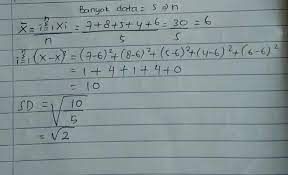 Banyak data = 5 ⇒ n
x̄ = ⁿΣᵢ₌₁ Xi = 7 + 8 + 5 + 4 + 6 = 30 = 6
n 5 5
ⁿΣᵢ₌₁ (x - x̄)² = (7-6)² + (8-6)² + (5-6)² + (4-6)² + (6-6)²
= 1 + 4 + 1 + 4 + 0
= 10
SD = √10/5
= √2